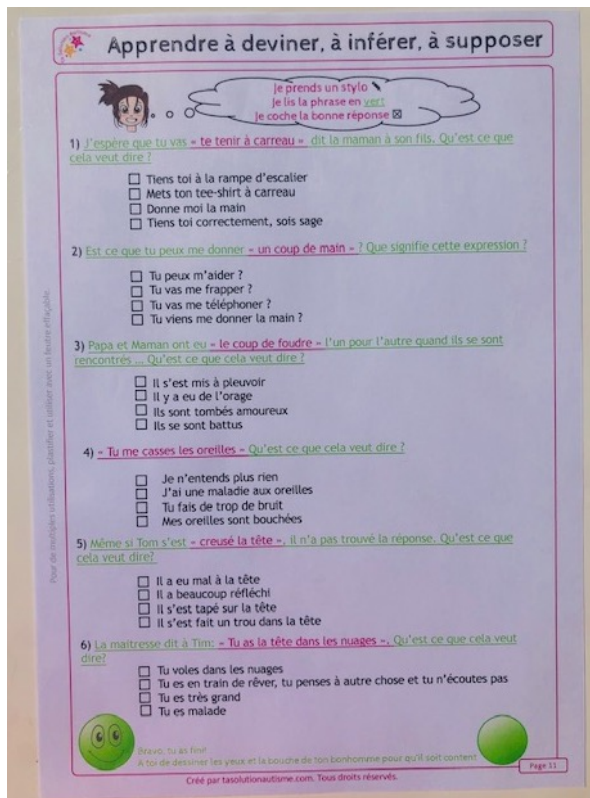 Apprendre à deviner, à inférer, à supposer
Je prends un stylo
Je lis la phrase en vert
Je coche la bonne réponse
1) J'espère que tu vas « te tenir à carreau » dit la maman à son fils. Qu'est ce que
cela veut dire ?
Tiens toi à la rampe d'escalier
Mets ton tee-shirt à carreau
Donne moi la main
Tiens toi correctement, sois sage
2) Est ce que tu peux me donner « un coup de main » ? Que signifie cette expression ?
Tu peux m'aider ?
Tu vas me frapper ?
Tu vas me téléphoner ?
Tu viens me donner la main ?
3) Papa et Maman ont eu « le coup de foudre » l'un pour l'autre quand ils se sont
rencontrés ... Qu'est ce que cela veut dire ?
Il s'est mis à pleuvoir
Il y a eu de l'orage
Ils sont tombés amoureux
Ils se sont battus
4) « Tu me casses les oreilles » Qu'est ce que cela veut dire ?
Je n'entends plus rien
J'ai une maladie aux oreilles
Tu fais de trop de bruit
Mes oreilles sont bouchées
5) Même si Tom s'est « creusé la tête », il n'a pas trouvé la réponse. Qu'est ce que
cela veut dire?
Il a eu mal à la tête
Il a beaucoup réfléchi
Il s'est tapé sur la tête
Il s'est fait un trou dans la tête
6) La maitresse dit à Tim: « Tu as la tête dans les nuages ». Qu'est ce que cela veut
dire?
Tu voles dans les nuages
Tu es en train de rêver, tu penses à autre chose et tu n'écoutes pas
Tu es très grand
Tu es malade
Bravo, tu as fini!
A toi de dessiner les yeux et la bouche de ton bonhomme pour qu'il soit content
Page 11
Créé par tasolutionautisme.com. Tous droits réservés.
Pour de multiples utilisations, plastifier et utiliser avec un feutre effaçable